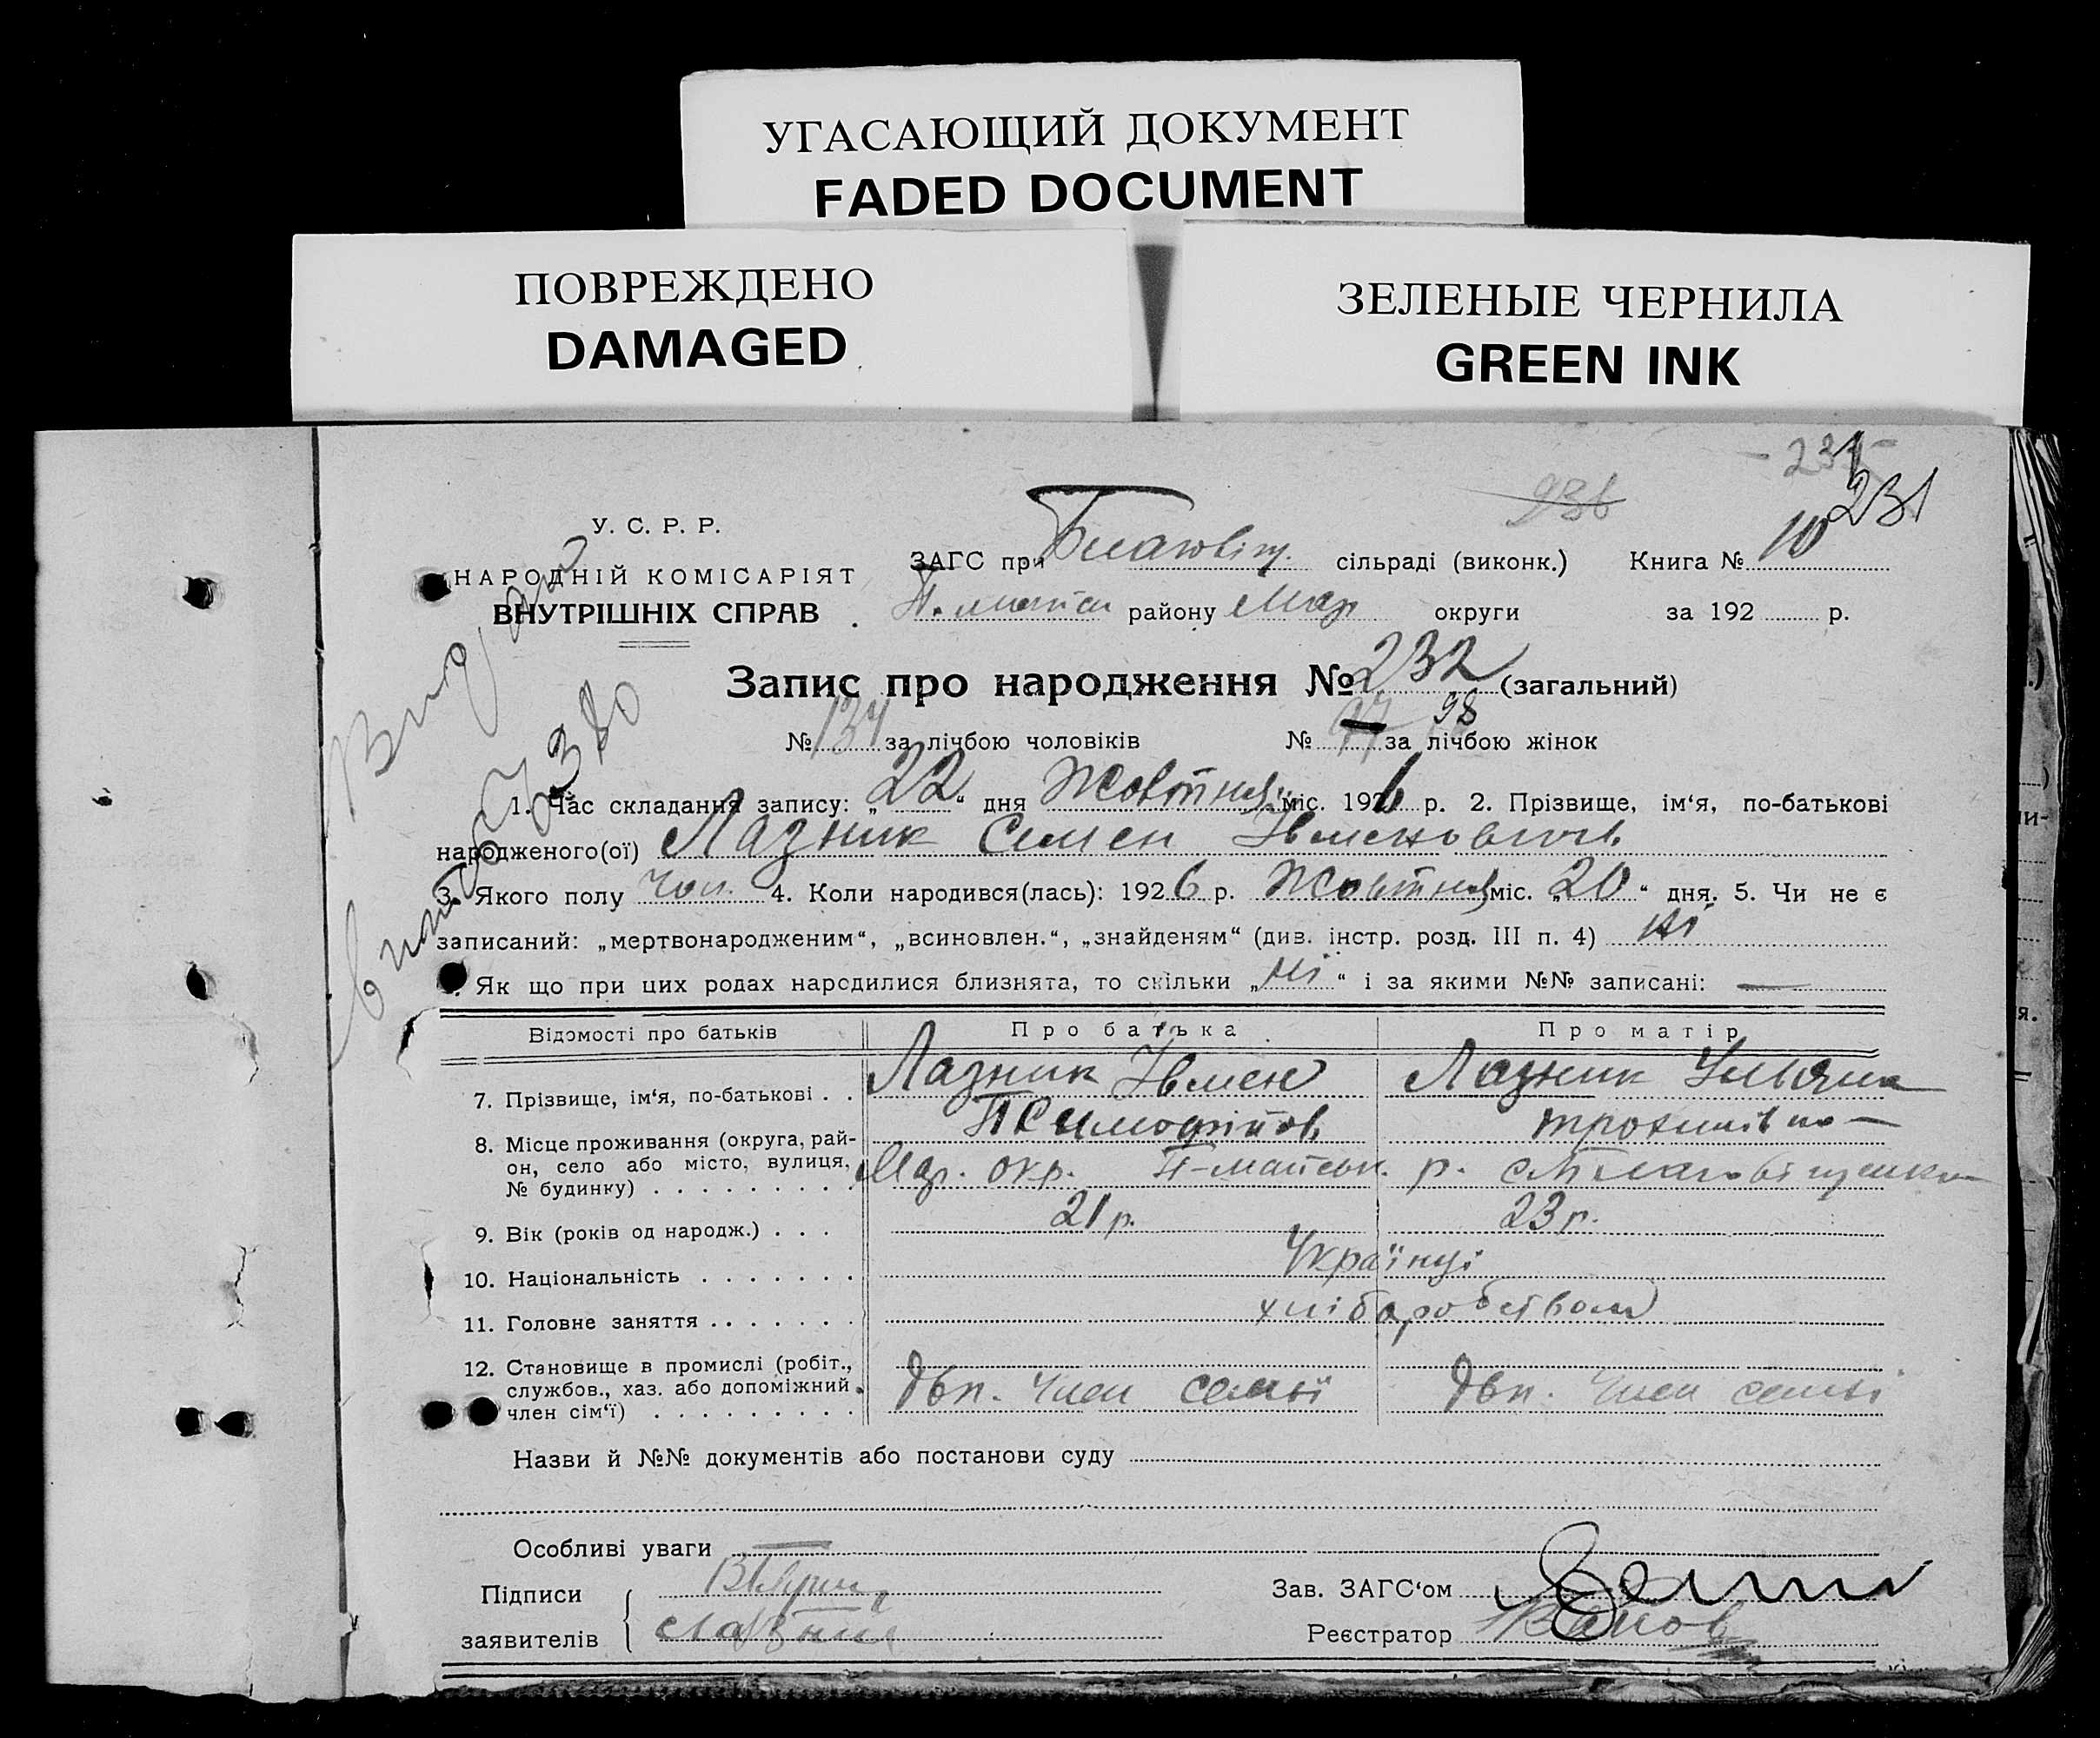 УГАСАЮЩИЙ ДОКУМЕНТ
FADED DOCUMENT
ПОВРЕЖДЕНО
DAMAGED
ЗЕЛЕНЫЕ ЧЕРНИЛА
GREEN INK
231
231
У. С. Р. Р.
НАРОДНІЙ КОМІСАРІЯТ
ВНУТРІШНІХ СПРАВ
ЗАГС при Благовіщ. сільраді (виконк.) Книга № 10
району Мар округи за 192 р.
Запис про народження № 232 (загальний)
№ 134 за лічбою чоловіків № 97 98 за лічбою жінок
1. Час складання запису: „22“ дня Жовтня міс. 1926 р. 2. Прізвище, ім‘я, по-батькові
народженого(ої) Лазник Семен Івменович
3. Якого полу чол. 4. Коли народився(лась): 1926 р. Жовтня міс. „20“ дня. 5. Чи не є
записаний: „мертвонародженим“, „всиновлен.“, „знайденям“ (див. інстр. розд. III п. 4) ні
Як що при цих родах народилися близнята, то скільки „ні“ і за якими №№ записані: —
Відомості про батьків Про батька Про матір
7. Прізвище, ім‘я, по-батькові . . Лазник Івмен Лазник Уляна
Трохимівна —
8. Місце проживання (округа, район, село або місто, вулиця, № будинку) Мар. окр. П-майськ. р.
9. Вік (років од народж.) . . . 21 р. 23 р.
10. Національність Українці
11. Головне заняття хліборобством
12. Становище в промислі (робіт., службов., хаз. або допоміжний член сім‘ї) двп. член семьї двп. член семьі
Назви й №№ документів або постанови суду
Особливі уваги —
Підписи
заявителів
Зав. ЗАГС‘ом
Реєстратор Іванов